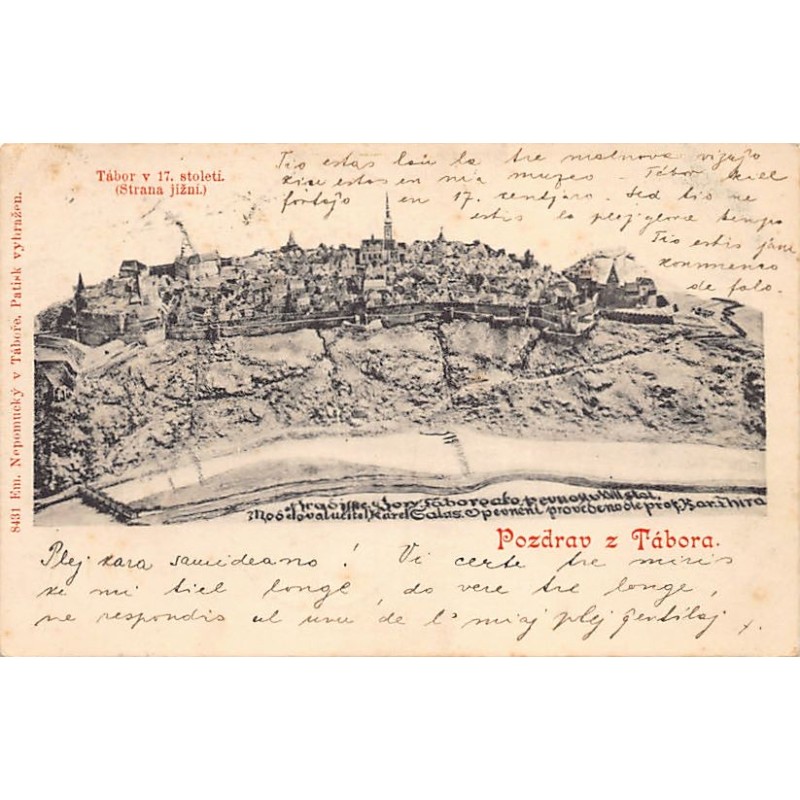 Tábor v 17. století.
(Strana jižní.)
Tio estas laŭ la tre malnova vizaĝo
kiu estas en nia muzeo - Tábor kiel
fortaĵo en 17. centjaro. Sed tio ne
estis la plej glora tempo
Tio estis jam
konmenco
de falo.
8431 Em. Nepomucký v Táboře. Patisk vyhražen.
Hradiště hory Tábor jako pevnost v XVII stol.
Modeloval učitel Karel Salas. Opevnění provedeno dle prof. Kar. Thira
Pozdrav z Tábora.
Plej kara samideano! Vi certe tre miris
ke mi tiel longe, do vere tre longe,
ne respondis al unu de l' miaj plej ĝentilaj